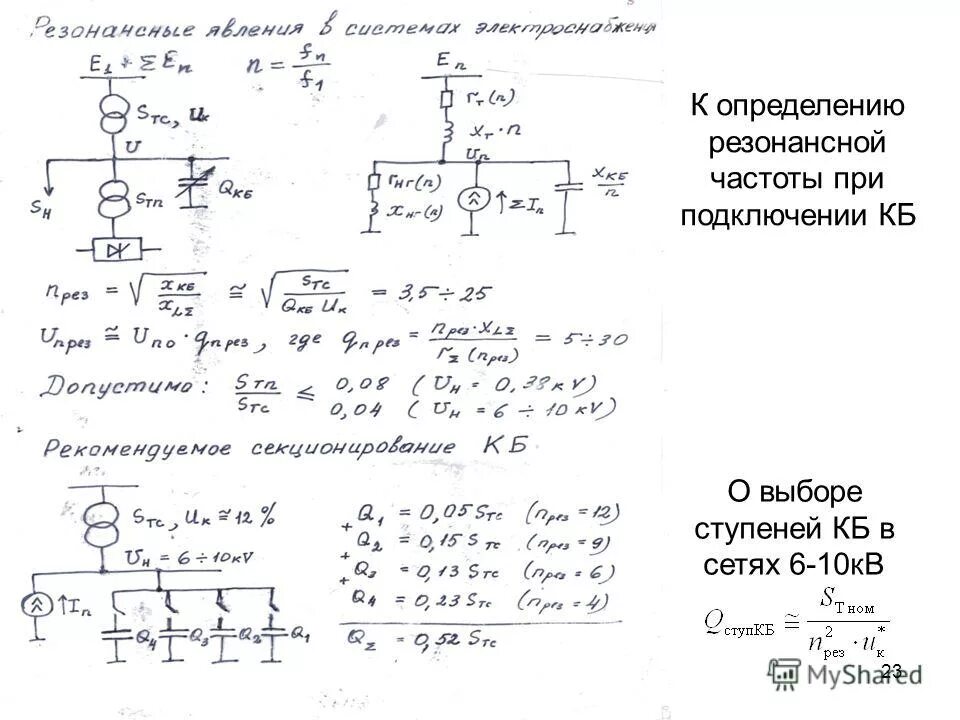 Резонансные явления в системах электроснабжения
E₁ + ΣEп
n = fп / f₁
Eп
Sтс, Uк
U
Sн
Sтп
Qкб
rт(п)
xт·п
Uп
rнг(п)
xнг(п)
↑ΣIп
xкб / п
nрез = √(xкб / xLΣ) ≅ √(Sтс / (Qкб Uк)) = 3,5÷25
Uпрез ≅ Uпо · qпрез, где qпрез = (nрез·xLΣ) / (rΣ(nрез)) = 5÷30
Допустимо: Sтп / Sтс ≤ 0,08 (Uн = 0,38кV)
0,04 (Uн = 6÷10кV)
Рекомендуемое секционирование КБ
Sтс, Uк ≅ 12%
Uн = 6÷10кV
↑Iп
Q4 Q3 Q2 Q1
Q1 = 0,05 Sтс (nрез = 12)
+
Q2 = 0,15 Sтс (nрез = 9)
+
Q3 = 0,13 Sтс (nрез = 6)
+
Q4 = 0,23 Sтс (nрез = 4)
QΣ = 0,52 Sтс
К определению
резонансной
частоты при
подключении КБ
О выборе
ступеней КБ в
сетях 6-10кВ
QступКБ ≅ SТном / (n²рез · u*к)
23
MyShared